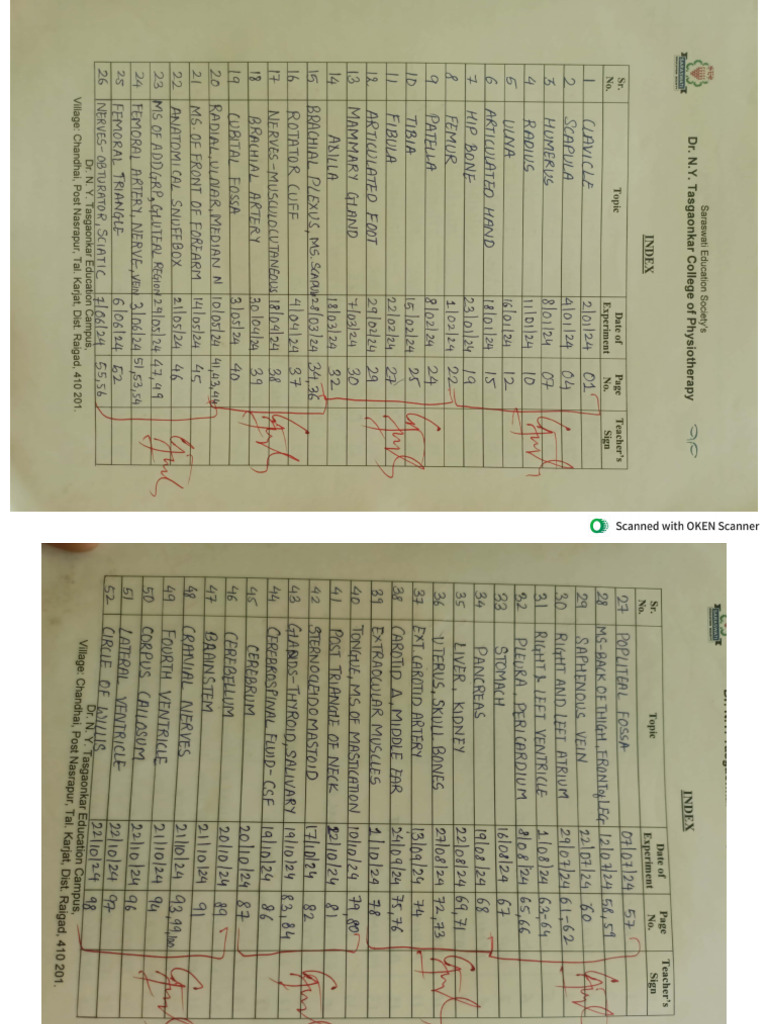 Saraswati Education Society's
Dr. N.Y. Tasgaonkar College of Physiotherapy
INDEX
Sr. No. Topic Date of Experiment Page No. Teacher's Sign
1 CLAVICLE 2/01/24 01
2 SCAPULA 4/01/24 04
3 HUMERUS 8/01/24 07
4 RADIUS 11/01/24 10
5 ULNA 16/01/24 12
6 ARTICULATED HAND 18/01/24 15
7 HIP BONE 23/01/24 19
8 FEMUR 1/02/24 22
9 PATELLA 8/02/24 24
10 TIBIA 15/02/24 25
11 FIBULA 22/02/24 27
12 ARTICULATED FOOT 29/02/24 29
13 MAMMARY GLAND 7/03/24 30
14 AXILLA 18/03/24 32
15 BRACHIAL PLEXUS, MS. SCAPULA 28/03/24 34,36
16 ROTATOR CUFF 4/04/24 37
17 NERVES-MUSCULOCUTANEOUS 18/04/24 38
18 BRACHIAL ARTERY 30/04/24 39
19 CUBITAL FOSSA 3/05/24 40
20 RADIAL, ULNAR, MEDIAN N 10/05/24 41,43,44
21 MS OF FRONT OF FOREARM 14/05/24 45
22 ANATOMICAL SNUFFBOX 21/05/24 46
23 MS OF ADD GRP, GLUTEAL REGION 29/05/24 47,49
24 FEMORAL ARTERY, NERVE, VEIN 3/06/24 51,53,54
25 FEMORAL TRIANGLE 6/06/24 52
26 NERVES-OBTURATOR, SCIATIC 7/06/24 55,56
Dr. N. Y. Tasgaonkar Education Campus,
Village: Chandhai, Post Nasrapur, Tal. Karjat, Dist. Raigad, 410 201.
Scanned with OKEN Scanner
INDEX
Sr. No. Topic Date of Experiment Page No. Teacher's Sign
27 POPLITEAL FOSSA 07/07/24 57
28 MS-BACK OF THIGH, FRONT of LEG 12/07/24 58,59
29 SAPHENOUS VEIN 22/07/24 60
30 RIGHT AND LEFT ATRIUM 29/07/24 61-62
31 RIGHT & LEFT VENTRICLE 1/08/24 63-64
32 PLEURA, PERICARDIUM 8/08/24 65,66
33 STOMACH 16/08/24 67
34 PANCREAS 19/08/24 68
35 LIVER, KIDNEY 22/08/24 69,71
36 UTERUS, SKULL BONES 27/08/24 72,73
37 EXT CAROTID ARTERY 13/09/24 74
38 CAROTID Δ, MIDDLE EAR 24/09/24 75,76
39 EXTRAOCULAR MUSCLES 1/10/24 78
40 TONGUE, MS OF MASTICATION 10/10/24 79,80
41 POST TRIANGLE OF NECK 12/10/24 81
42 STERNOCLEIDOMASTOID 17/10/24 82
43 GLANDS-THYROID, SALIVARY 19/10/24 83,84
44 CEREBROSPINAL FLUID-CSF 19/10/24 86
45 CEREBRUM 20/10/24 87
46 CEREBELLUM 20/10/24 89
47 BRAINSTEM 21/10/24 91
48 CRANIAL NERVES 21/10/24 93,99,100
49 FOURTH VENTRICLE 21/10/24 94
50 CORPUS CALLOSUM 22/10/24 96
51 LATERAL VENTRICLE 22/10/24 97
52 CIRCLE OF WILLIS 22/10/24 98
Dr. N. Y. Tasgaonkar Education Campus,
Village: Chandhai, Post Nasrapur, Tal. Karjat, Dist. Raigad, 410 201.